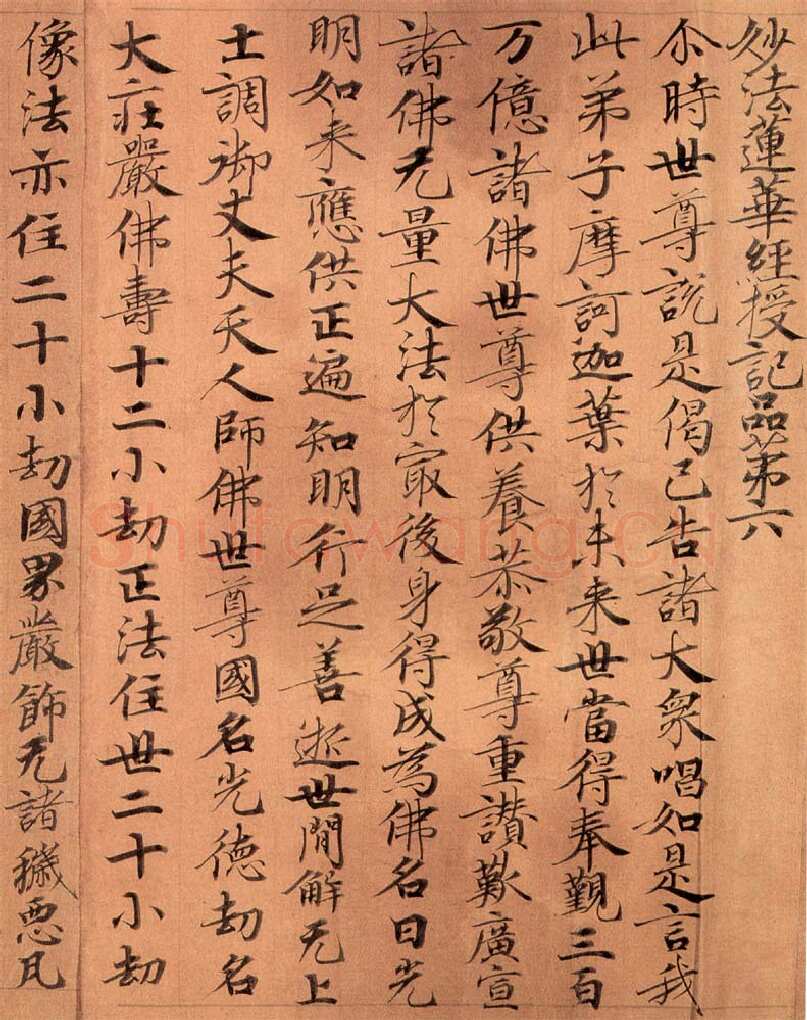 妙法蓮華經授記品苐六
尒時世尊說是偈已告諸大衆唱如是言我
此弟子摩訶迦葉於未来世當得奉觐三百
万億諸佛世尊供養恭敬尊重讃歎廣宣
諸佛无量大法於㝡後身得成為佛名曰光
明如来應供正遍知明行足善逝世間解无上
士調御丈夫天人師佛世尊國名光德劫名
大莊嚴佛壽十二小劫正法住世二十小劫
像法亦住二十小劫國界嚴飾无諸穢惡凡